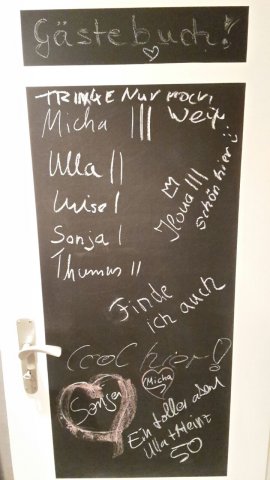 Gästebuch!
TRINKE NUR NOCH
Wein
Micha |||
Ulla ||
Luise |
Sonja |
Thomas ||
Ilona |||
schön hier :)
Finde
ich auch
Cool hier!
Micha
Sonja
Ein toller Abend
Ulla + Heinz
SO